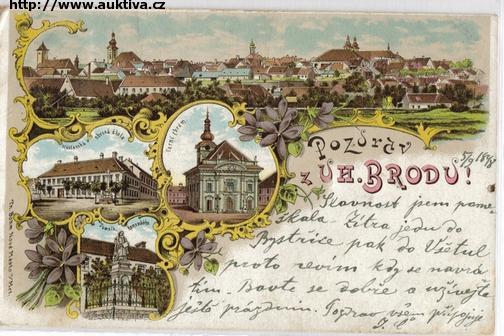 http://www.auktiva.cz
Pozdrav
z UH. BRODU!
Farní chrám
Pomník Komenského
5/9 1898
Slavnost jsem pome
škala. Zítra jedu do
Bystřice pak do Vsetul
proto nevím kdy se navrá
tím. Bavte se dobře a užívejte
ještě prázdnin. Pozdrav všem připojuje